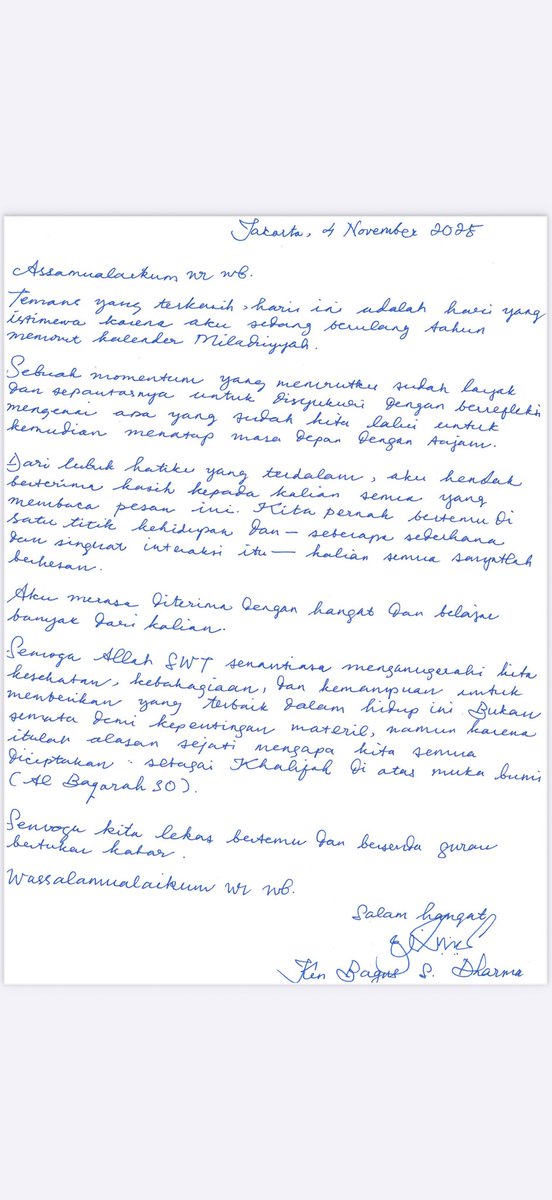 Jakarta, 4 November 2025
Assamualaikum wr wb.
Temans yang terkasih, haris ini adalah hari yang
istimewa karena aku sedang berulang tahun
menurut kalender Miladiyyah.
Sebuah momentum yang menurutku sudah layak
dan sepantasnya untuk disyukuri dengan berefleksi
mengenai apa yang sudah kita lalui untuk
kemudian menatap masa depan dengan tajam.
Dari lubuk hatiku yang terdalam, aku hendak
berterima kasih kepada kalian semua yang
membaca pesan ini. Kita pernah bertemu di
satu titik kehidupan dan — seberapa sederhana
dan singkat interaksi itu — kalian semua sangatlah
berkesan.
Aku merasa diterima dengan hangat dan belajar
banyak dari kalian.
Semoga Allah SWT senantiasa menganugerahi kita
kesehatan, kebahagiaan, dan kemampuan untuk
memberikan yang terbaik dalam hidup ini. Bukan
semata demi kepentingan materil, namun karena
itulah alasan sejati mengapa kita semua
diciptakan: sebagai Khalifah di atas muka bumi
(Al Baqarah 30).
Semoga kita lekas bertemu dan bersenda gurau
bertukar kabar.
Wassalamualaikum wr wb.
Salam hangat,
Ken Bagus S. Dharma